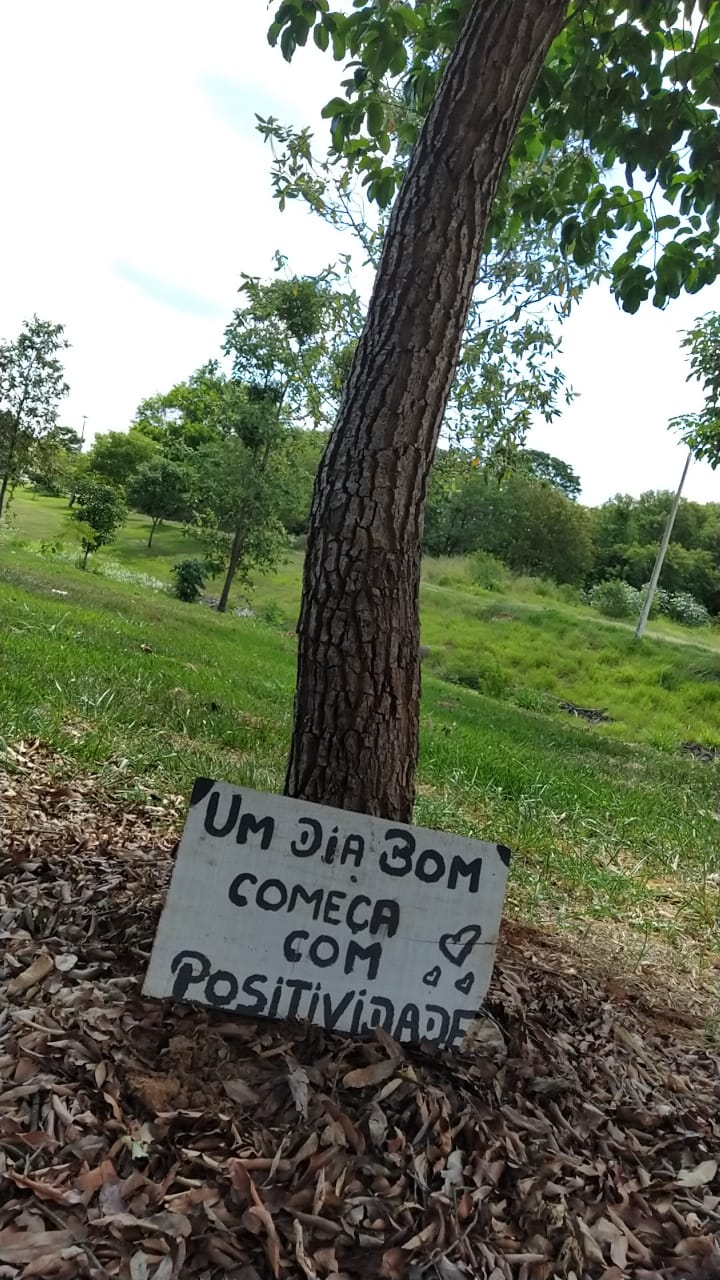 UM DIA BOM
COMEÇA
COM
POSITIVIDADE